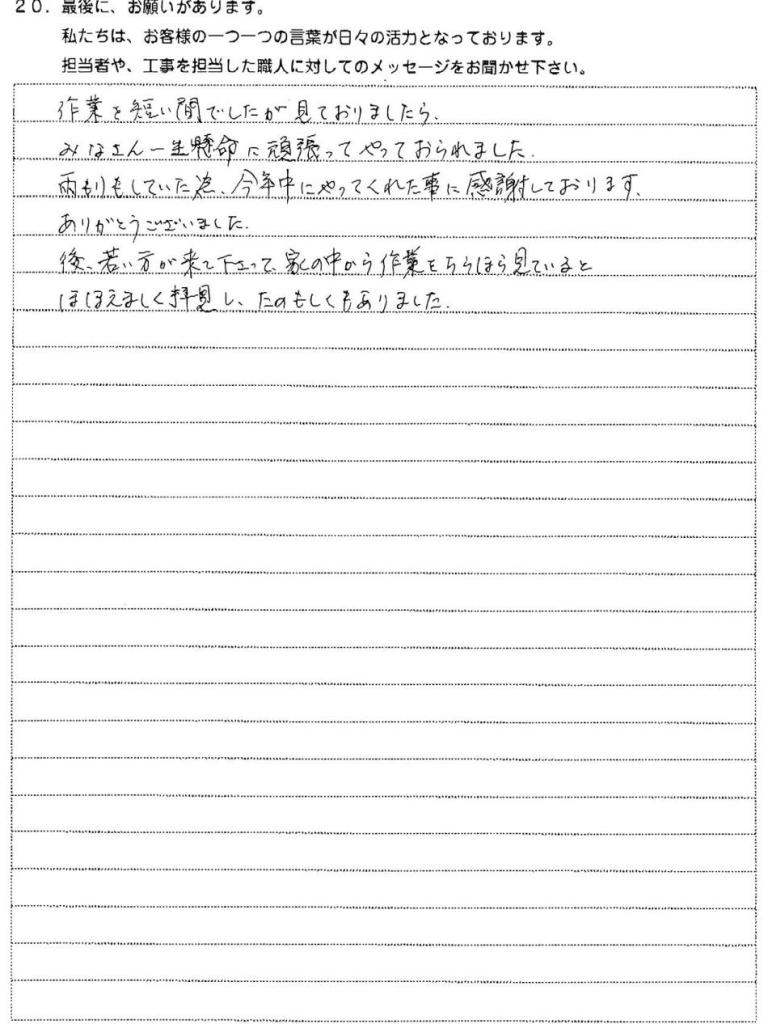 20. 最後に、お願いがあります。
私たちは、お客様の一つ一つの言葉が日々の活力となっております。
担当者や、工事を担当した職人に対してのメッセージをお聞かせ下さい。
作業を短い間でしたが見ておりましたら、
みなさん一生懸命に頑張ってやっておられました。
雨もりもしていた為、今年中にやってくれた事に感謝しております。
ありがとうございました。
後、若い方が来て下さって、家の中から作業をちらほら見ていると
ほほえましく拝見し、たのもしくもありました。